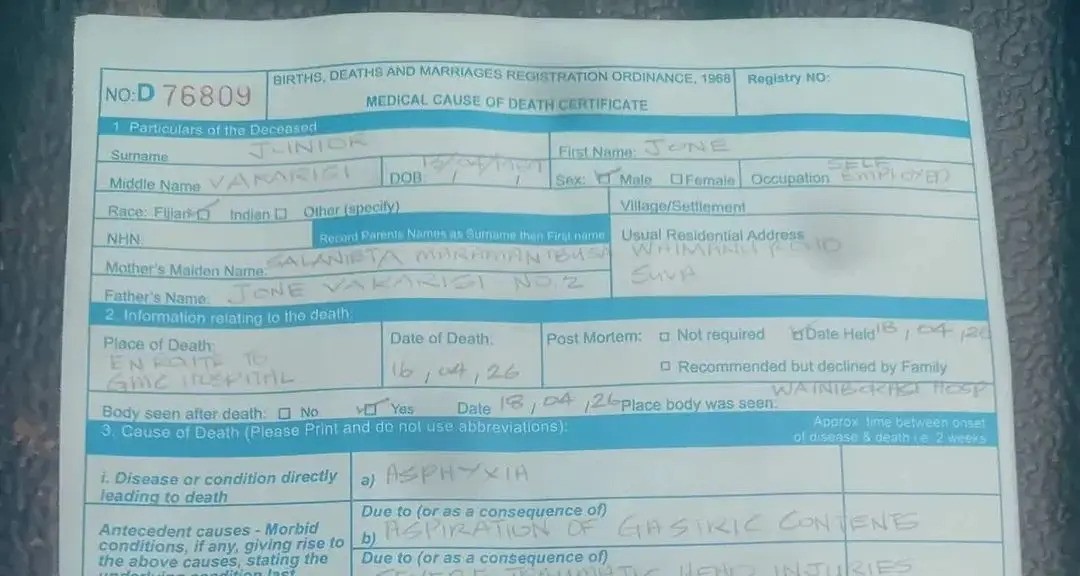 NO: D 76809
BIRTHS, DEATHS AND MARRIAGES REGISTRATION ORDINANCE, 1968
Registry NO:
MEDICAL CAUSE OF DEATH CERTIFICATE
1. Particulars of the Deceased
Surname JUNIOR
First Name: JONE
Middle Name VAKARISI
DOB: / /
Sex: Male Female
Occupation SELF EMPLOYED
Race: Fijian Indian Other (specify)
Village/Settlement
NHN:
Record Parents Names as Surname then First name
Usual Residential Address
Mother's Maiden Name: SALANIETA
WAIMANU ROAD
SUVA
Father's Name: JONE VAKARISI NO.2
2. Information relating to the death:
Place of Death:
EN ROUTE TO
HOSPITAL
Date of Death:
16, 04, 26
Post Mortem: Not required Date Held 18, 04, 26
Recommended but declined by Family
Body seen after death: No Yes Date 18, 04, 26 Place body was seen: WAINIBOKASI HOSP
3. Cause of Death (Please Print and do not use abbreviations):
Approx. time between onset
of disease & death i.e. 2 weeks
i. Disease or condition directly
leading to death
a) ASPHYXIA
Antecedent causes - Morbid
conditions, if any, giving rise to
the above causes, stating the
underlying condition last
Due to (or as a consequence of)
b) ASPIRATION OF GASTRIC CONTENTS
Due to (or as a consequence of)
SEVERE TRAUMATIC HEAD INJURIES